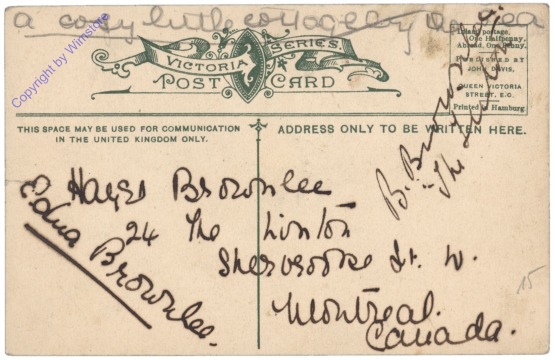 a cosy little cottage by the sea
VICTORIA SERIES.
POST CARD
Inland postage,
One Halfpenny.
Abroad, One Penny.
PUBLISHED BY
JOHN DAVIS,
QUEEN VICTORIA
STREET, E.C.
Printed in Hamburg.
Copyright by Winstore
THIS SPACE MAY BE USED FOR COMMUNICATION
IN THE UNITED KINGDOM ONLY.
ADDRESS ONLY TO BE WRITTEN HERE.
B. Brownlee
"The Linton"
Hayes Brownlee
24 The Linton
Sherbrooke St. W.
Montreal.
Canada.
Edna Brownlee.
15